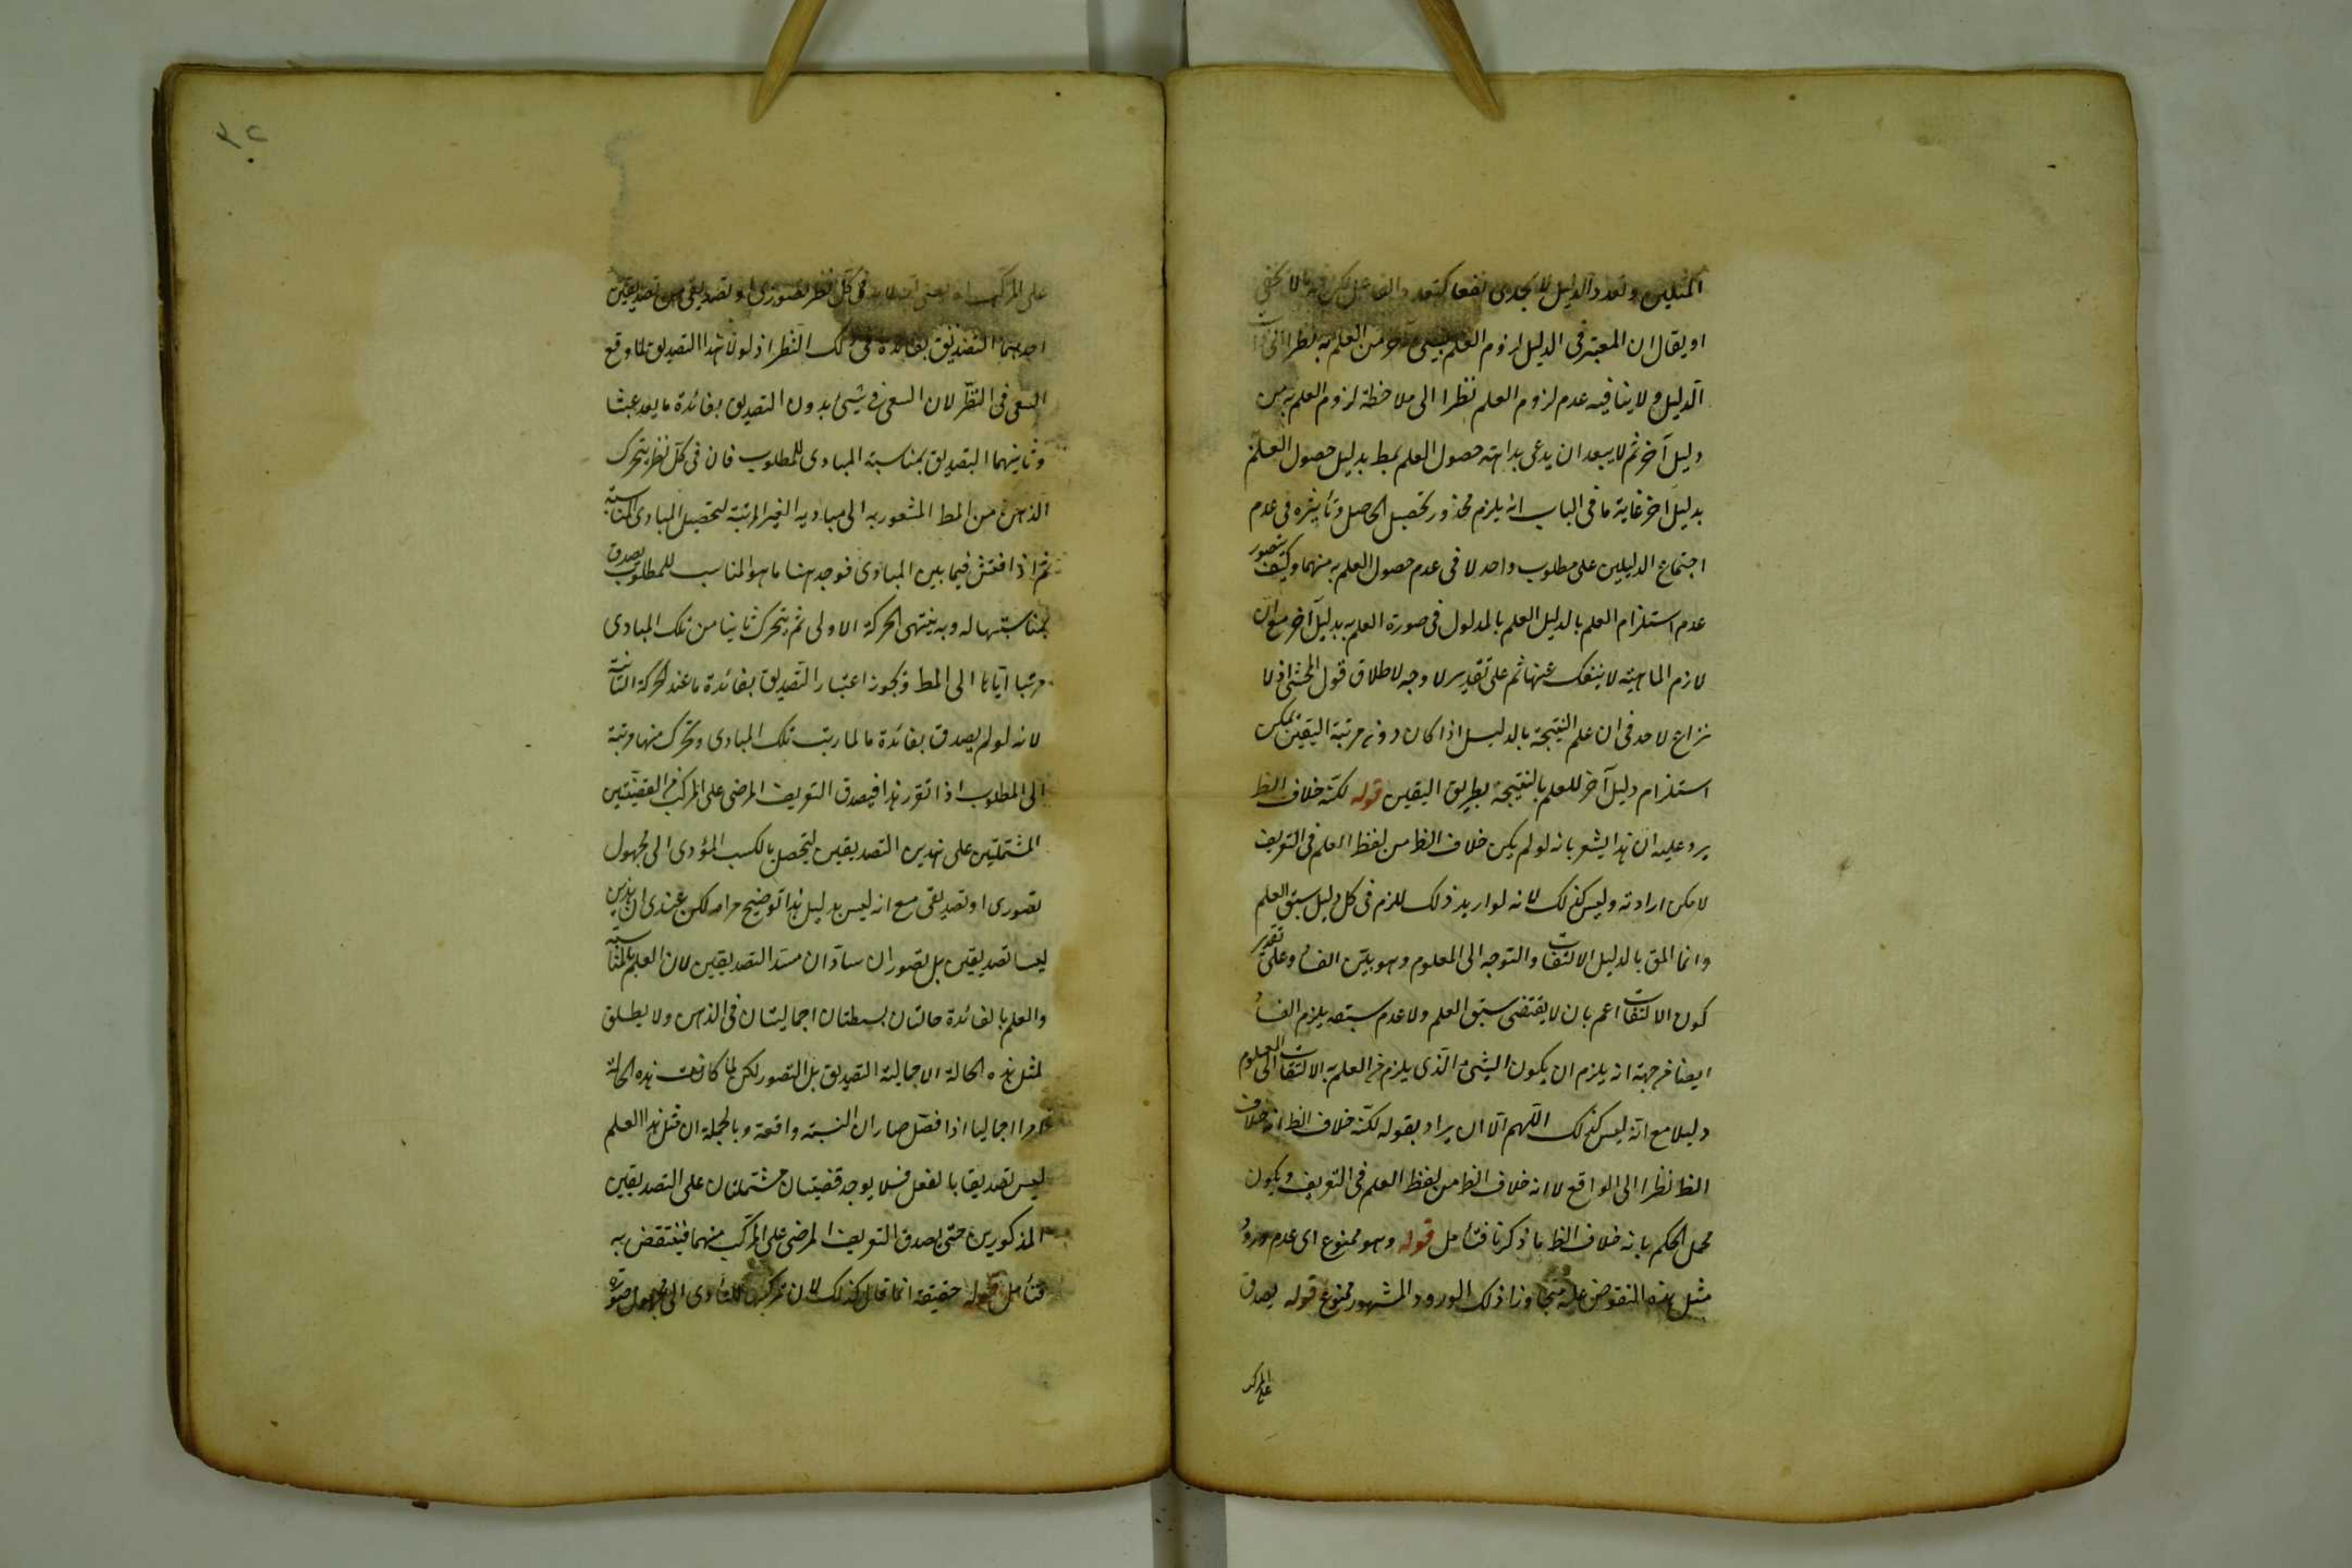 المثلين وتعدد الدليل لا يجدى نفعا كتعدد الفاعل
او يقال ان المعتبر فى الدليل لزوم العلم بشىء آخر من العلم به نظرا الى ذات
الدليل ولا ينافيه عدم لزوم العلم نظرا الى ملاحظة لزوم العلم به من
دليل آخر ثم لا يبعد ان يدعى بداهته حصول العلم بمط بدليل حصول العلم
بدليل اخر غاية ما فى الباب انه يلزم محذور تحصيل الحاصل وتأثيره فى عدم
اجتماع الدليلين على مطلوب واحد لا فى عدم حصول العلم به منهما وكيف يتصور
عدم استلزام العلم بالدليل العلم بالمدلول فى صورة العلم به بدليل آخر مع ان
لازم الماهية لا ينفك عنها ثم على تقدير لا وجه لاطلاق قول المحشى اذ لا
نزاع لاحد فى ان علم النتيجة بالدليل اذا كان دون مرتبة اليقين يمكن
استلزام دليل آخر للعلم بالنتيجة بطريق اليقين قوله لكنه خلاف الظ
يرد عليه ان هذا يشعر بانه لو لم يكن خلاف الظ من لفظ العلم فى التعريف
لامكن ارادته وليس كذلك لانه لو اريد ذلك للزم فى كل دليل سبق العلم
وانما المق بالدليل الالتفات والتوجه الى المعلوم وهو بين الفسا وعلى تقدير
كون الالتفات اعم بان لا يقتضى سبق العلم ولا عدم سبقه يلزم الفساد
ايضا من جهة انه يلزم ان يكون الشىء الذى يلزم من العلم به الالتفات الى المعلوم
دليلا مع انه ليس كذلك اللهم الا ان يراد بقوله لكنه خلاف الظ انه خلاف
الظ نظرا الى الواقع لا انه خلاف الظ من لفظ العلم فى التعريف ويكون
محمل الحكم بانه خلاف الظ ما ذكرنا فتأمل قوله وهو ممنوع اى عدم ورود
مثل هذه النقوض عليه متجاوزا ذلك الورود المشهور ممنوع قوله يصدق
على المركب
على المركب فى كل نظر تصورى او تصديقى من تصديقين
احدهما التصديق بفائدة فى ذلك النظر اذ لولا هذا التصديق لما وقع
السعى فى النظر لان السعى فى شىء بدون التصديق بفائدة ما يعد عبثا
وثانيهما التصديق بمناسبة المبادى للمطلوب فان فى كل نظر يتحرك
الذهن من المط المشعور به الى مباديه الغير المرتبة لتحصيل المبادى المناسبة
ثم اذا فتش فيما بين المبادى فوجد هنا ما هو المناسب للمطلوب يصدق
بمناسبتها له وبه ينتهى الحركة الاولى ثم يتحرك ثانيا من تلك المبادى
مرتبا اياها الى المط ويجوز اعتبار التصديق بفائدة ما عند الحركة الثانية
لانه لو لم يصدق بفائدة ما لما رتب تلك المبادى وتحرك منها مرتبة
الى المطلوب اذا تقرر هذا فيصدق التعريف المرضى على المركب من القضيتين
المشتملتين على هذين التصديقين ليتحصل بالكسب المؤدى الى مجهول
تصورى او تصديقى مع انه ليس بدليل هذا توضيح مرامه لكن عندى ان هذين
ليسا تصديقين بل تصوران سادان مسد التصديقين لان العلم بالمناسبة
والعلم بالفائدة حالتان بسيطتان اجماليتان فى الذهن ولا يطلق
لمثل هذه الحالة الاجمالية التصديق بل التصور لكن لما كانت هذه الحالة
امرا اجماليا اذا فصل صار ان النسبة واقعة وبالجملة ان مثل هذا العلم
ليس تصديقا بالفعل فلا يوجد قضيتان مشتملتان على التصديقين
المذكورين حتى يصدق التعريف المرضى على المركب منهما فينتقض به
فتأمل قوله حقيقة انما قال كذلك لان تركبها للتأدى الى مجهول صورة